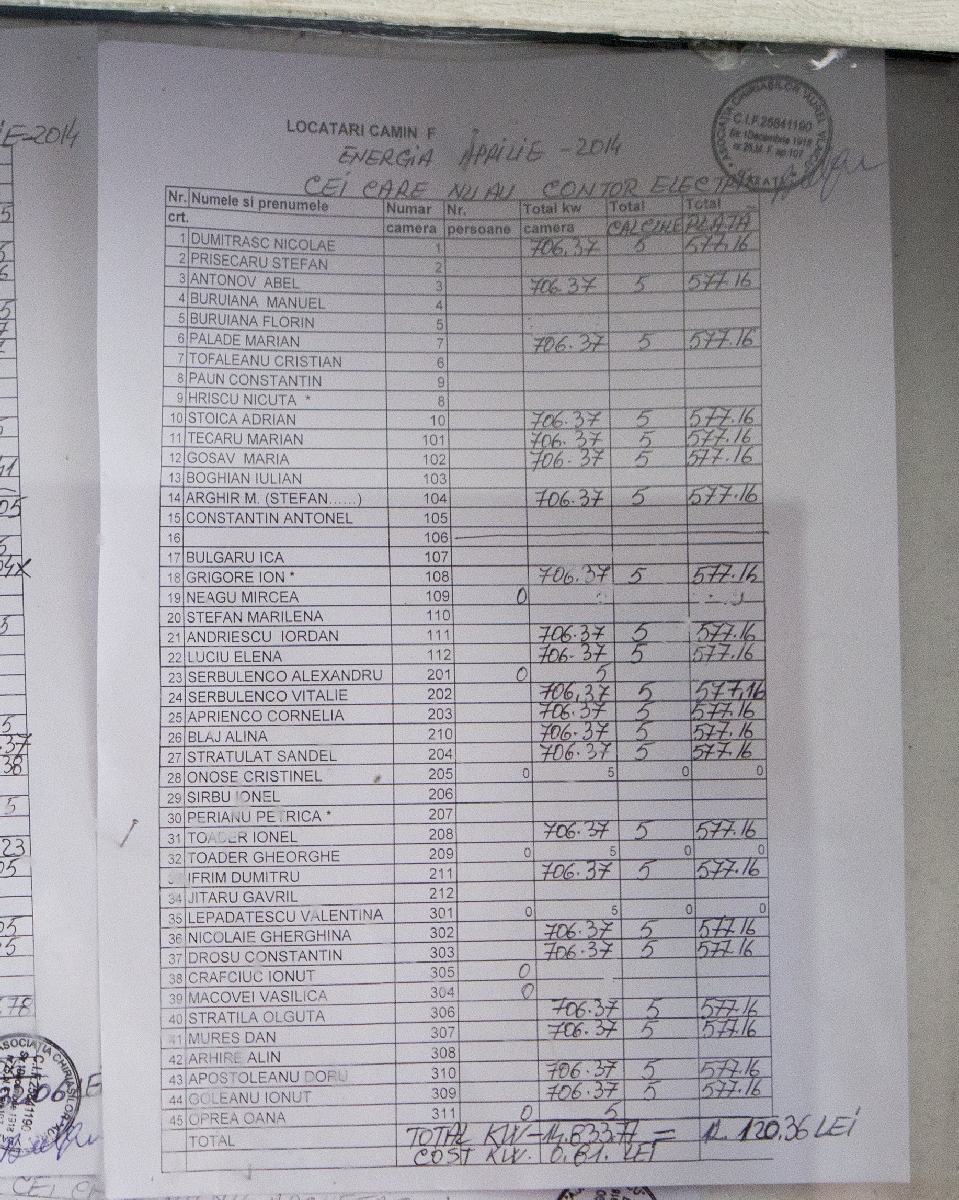 E-2014
LOCATARI CAMIN F
ENERGIA APRILIE - 2014
CEI CARE NU AU CONTOR ELECTRIC
ASOCIATIA CHIRIASILOR AUREL VLAICU
C.I.F.25841190
Str. 1Decembrie 1918
nr.25,bl. F, ap.107
GALATI
Nr. crt. Numele si prenumele Numar camera Nr. persoane Total kw camera Total CALC.INE Total PLATA
1 DUMITRASC NICOLAE 1 706.37 5 577.16
2 PRISECARU STEFAN 2
3 ANTONOV ABEL 3 706.37 5 577.16
4 BURUIANA MANUEL 4
5 BURUIANA FLORIN 5
6 PALADE MARIAN 7 706.37 5 577.16
7 TOFALEANU CRISTIAN 6
8 PAUN CONSTANTIN 9
9 HRISCU NICUTA * 8
10 STOICA ADRIAN 10 706.37 5 577.16
11 TECARU MARIAN 101 706.37 5 577.16
12 GOSAV MARIA 102 706.37 5 577.16
13 BOGHIAN IULIAN 103
14 ARGHIR M. (STEFAN......) 104 706.37 5 577.16
15 CONSTANTIN ANTONEL 105
16 106
17 BULGARU ICA 107
18 GRIGORE ION * 108 706.37 5 577.16
19 NEAGU MIRCEA 109 0
20 STEFAN MARILENA 110
21 ANDRIESCU IORDAN 111 706.37 5 577.16
22 LUCIU ELENA 112 706.37 5 577.16
23 SERBULENCO ALEXANDRU 201 0 5
24 SERBULENCO VITALIE 202 706,37 5 577,16
25 APRIENCO CORNELIA 203 706.37 5 577.16
26 BLAJ ALINA 210 706.37 5 577.16
27 STRATULAT SANDEL 204 706.37 5 577.16
28 ONOSE CRISTINEL 205 0 5 0 0
29 SIRBU IONEL 206
30 PERIANU PETRICA * 207
31 TOADER IONEL 208 706.37 5 577.16
32 TOADER GHEORGHE 209 0 5 0 0
33 IFRIM DUMITRU 211 706.37 5 577.16
34 JITARU GAVRIL 212
35 LEPADATESCU VALENTINA 301 0 5 0 0
36 NICOLAIE GHERGHINA 302 706.37 5 577.16
37 DROSU CONSTANTIN 303 706.37 5 577.16
38 CRAFCIUC IONUT 305 0
39 MACOVEI VASILICA 304 0
40 STRATILA OLGUTA 306 706.37 5 577.16
41 MURES DAN 307 706.37 5 577.16
42 ARHIRE ALIN 308
43 APOSTOLEANU DORU 310 706.37 5 577.16
44 GOLEANU IONUT 309 706.37 5 577.16
45 OPREA OANA 311 0 5
TOTAL TOTAL KW-14.833.77 = 12.120.36 LEI
COST KW. 0.61. LEI